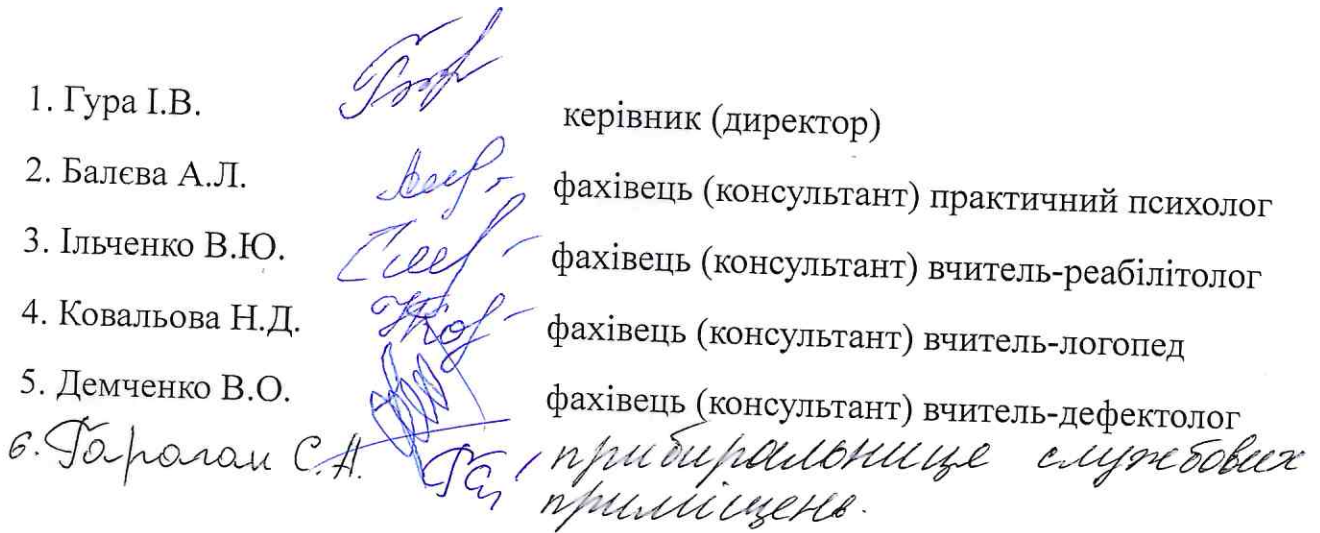 1. Гура І.В. керівник (директор)
2. Балєва А.Л. фахівець (консультант) практичний психолог
3. Ільченко В.Ю. фахівець (консультант) вчитель-реабілітолог
4. Ковальова Н.Д. фахівець (консультант) вчитель-логопед
5. Демченко В.О. фахівець (консультант) вчитель-дефектолог
6. С.А. прибиральниця службових
приміщень.